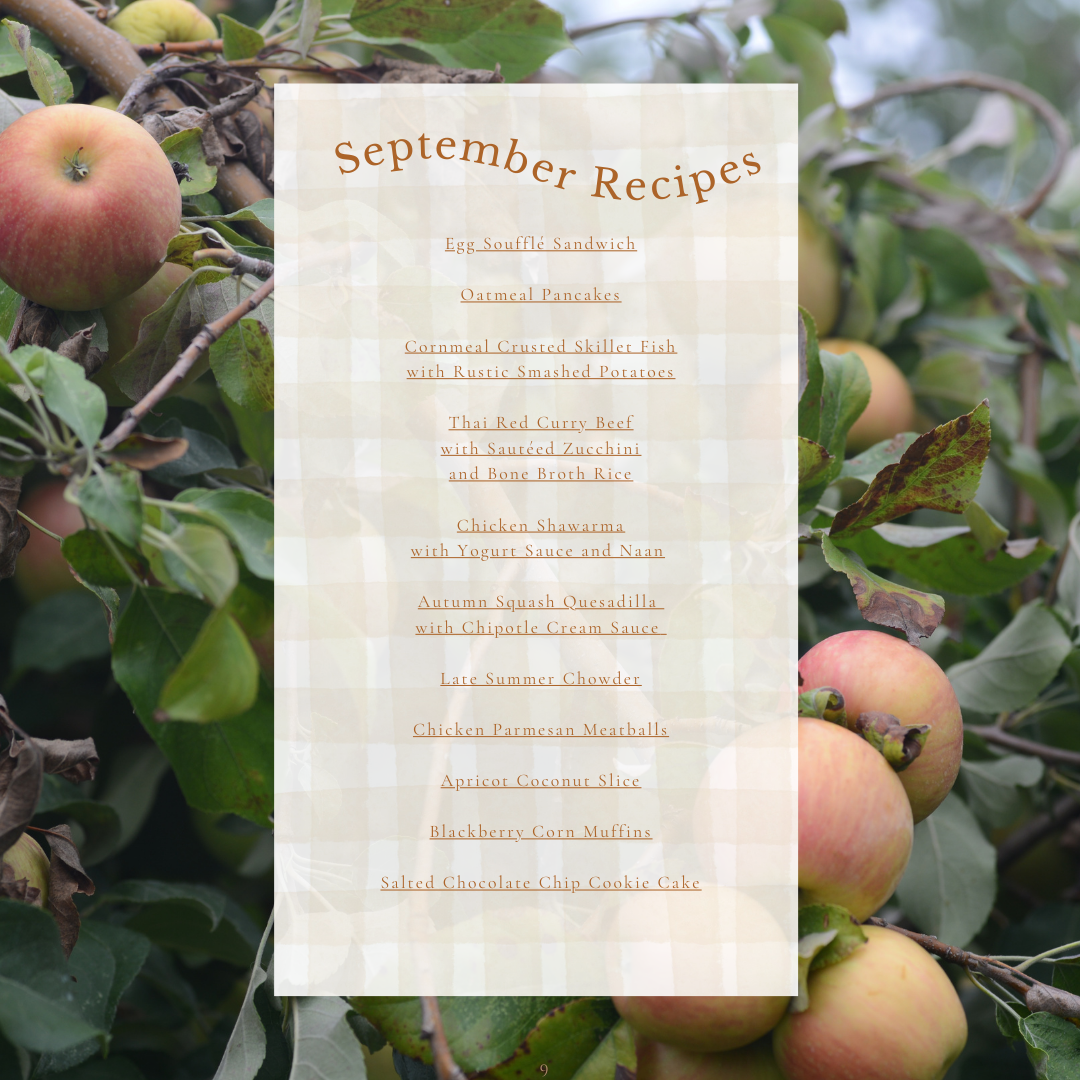 September Recipes
Egg Soufflé Sandwich
Oatmeal Pancakes
Cornmeal Crusted Skillet Fish
with Rustic Smashed Potatoes
Thai Red Curry Beef
with Sautéed Zucchini
and Bone Broth Rice
Chicken Shawarma
with Yogurt Sauce and Naan
Autumn Squash Quesadilla
with Chipotle Cream Sauce
Late Summer Chowder
Chicken Parmesan Meatballs
Apricot Coconut Slice
Blackberry Corn Muffins
Salted Chocolate Chip Cookie Cake
9